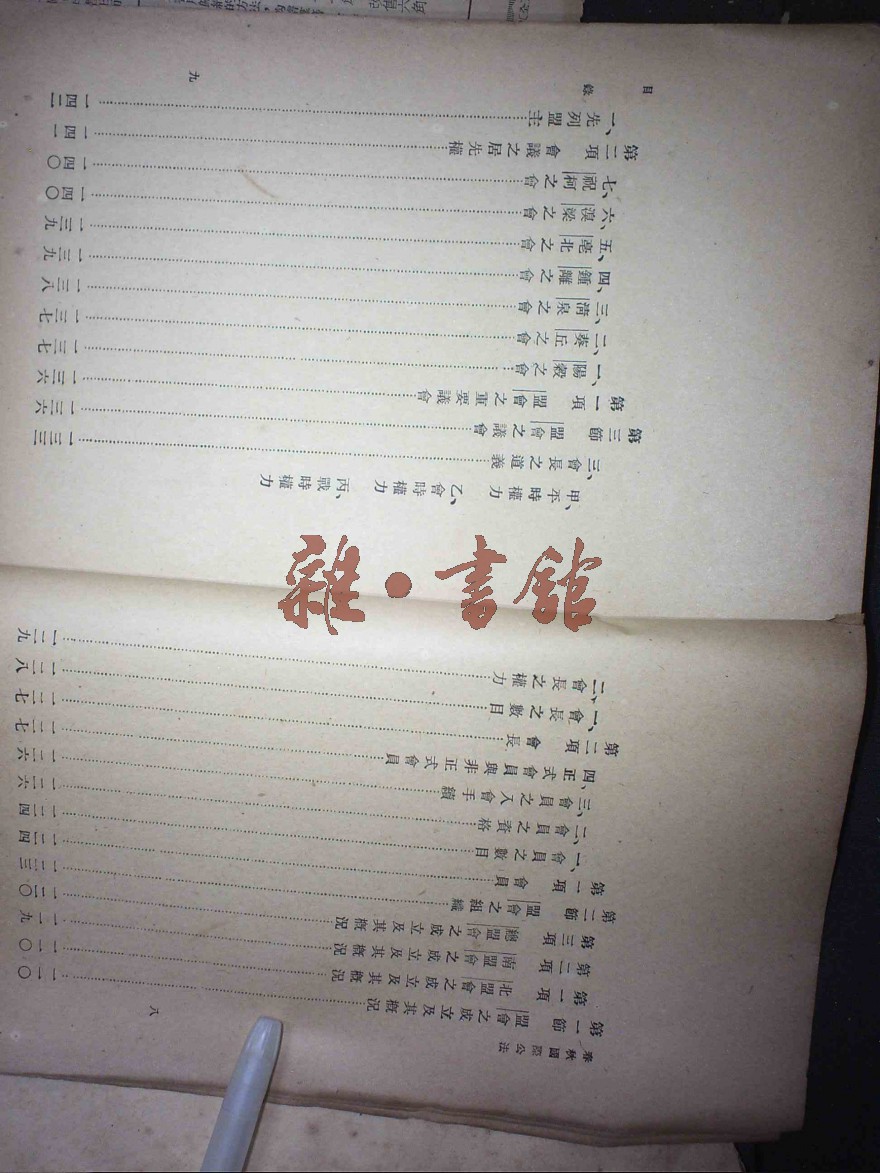 春秋國際公法
第一節　盟會之成立及其概況……一一〇
第一項　北盟會之成立及其概況……一一〇
第二項　南盟會之成立及其概況……一一九
第三項　總盟會之成立及其概況……一二〇
第二節　盟會組織……一二三
第一項　會員……一二四
一、會員之數目……一二四
二、會員之資格……一二六
三、會員之入會手續……一二六
四、正式會員與非正式會員……一二七
第二項　會長……一二七
一、會長之數目……一二八
二、會長之權力……一二九
八
目錄
甲、平時權力　乙、會時權力　丙、戰時權力
三、會長之道義……一三三
第三節　盟會之議會……一三六
第一項　盟會之重要議會……一三六
一、陽穀之會……一三七
二、葵丘之會……一三七
三、清泉之會……一三八
四、鍾離之會……一三九
五、亳北之會……一三九
六、溴梁之會……一四〇
七、祝柯之會……一四〇
第二項　會議之居先權……一四一
一、先列盟主……一四二
九
雜·書館